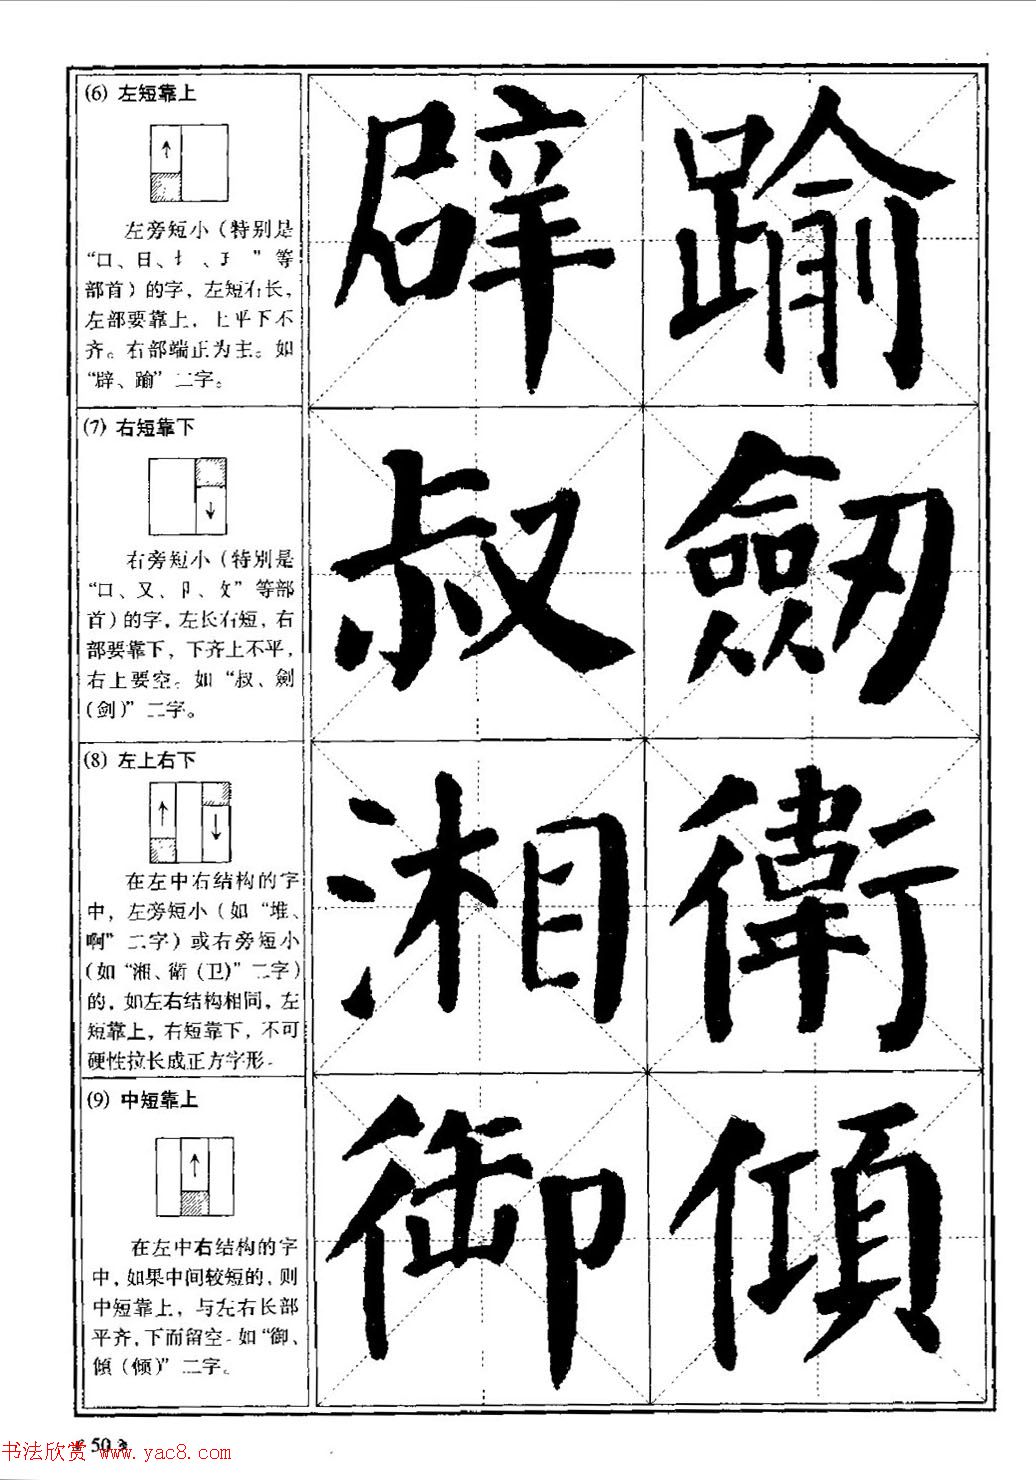 (6) 左短靠上
左旁短小（特别是
“口、日、土、王”等
部首）的字，左短右长，
左部要靠上，上平下不
齐。右部端正为主。如
“辟、踰”二字。
辟 踰
(7) 右短靠下
右旁短小（特别是
“口、又、卩、攵”等部
首）的字，左长右短，右
部要靠下，下齐上不平，
右上要空。如“叔、劍
（剑）”二字。
叔 劒
(8) 左上右下
在左中右结构的字
中，左旁短小（如“堆、
啊”二字）或右旁短小
（如“湘、衛（卫）”二字）
的，如左右结构相同，左
短靠上，右短靠下，不可
硬性拉长成正方字形。
湘 衛
(9) 中短靠上
在左中右结构的字
中，如果中间较短的，则
中短靠上，与左右长部
平齐，下面留空。如“御、
傾（倾）”二字。
御 傾
50
书法欣赏 www.yac8.com